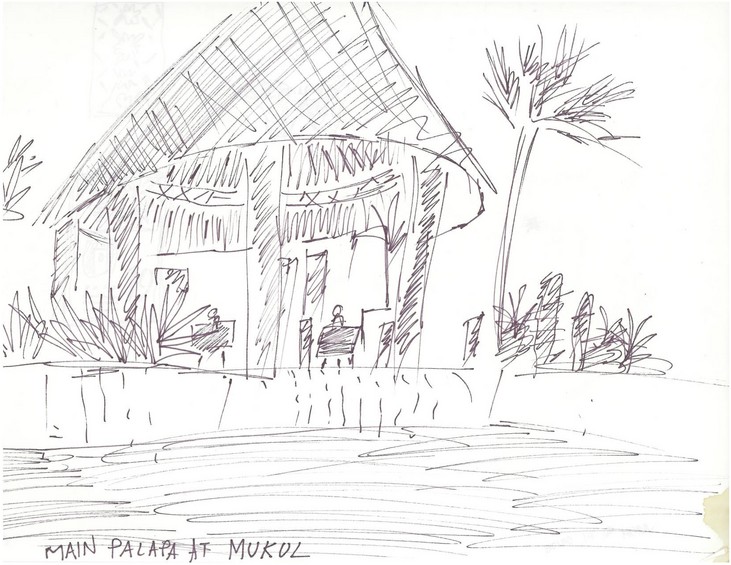 MAIN PALAPA AT MUKOL